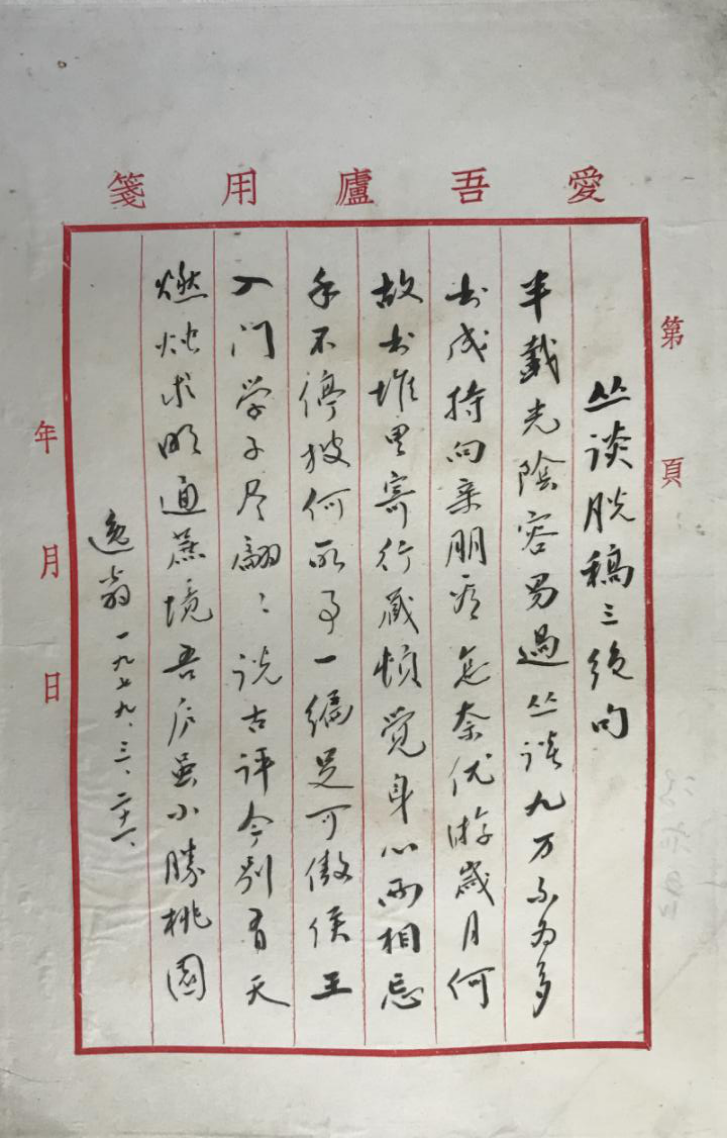 愛吾廬用箋
第 頁
丛谈脱稿三绝句
半載光陰容易過丛谈九万不为多
书成持向亲朋 怎奈优游歲月何
故书堆里寄行藏顿觉身心两相忘
手不停披何所事一编足可傲侯王
入门学子尽翩々说古评今别有天
燃烛求明通蔗境吾庐虽小勝桃園
逸翁 一九七九、三、二十一、
年 月 日